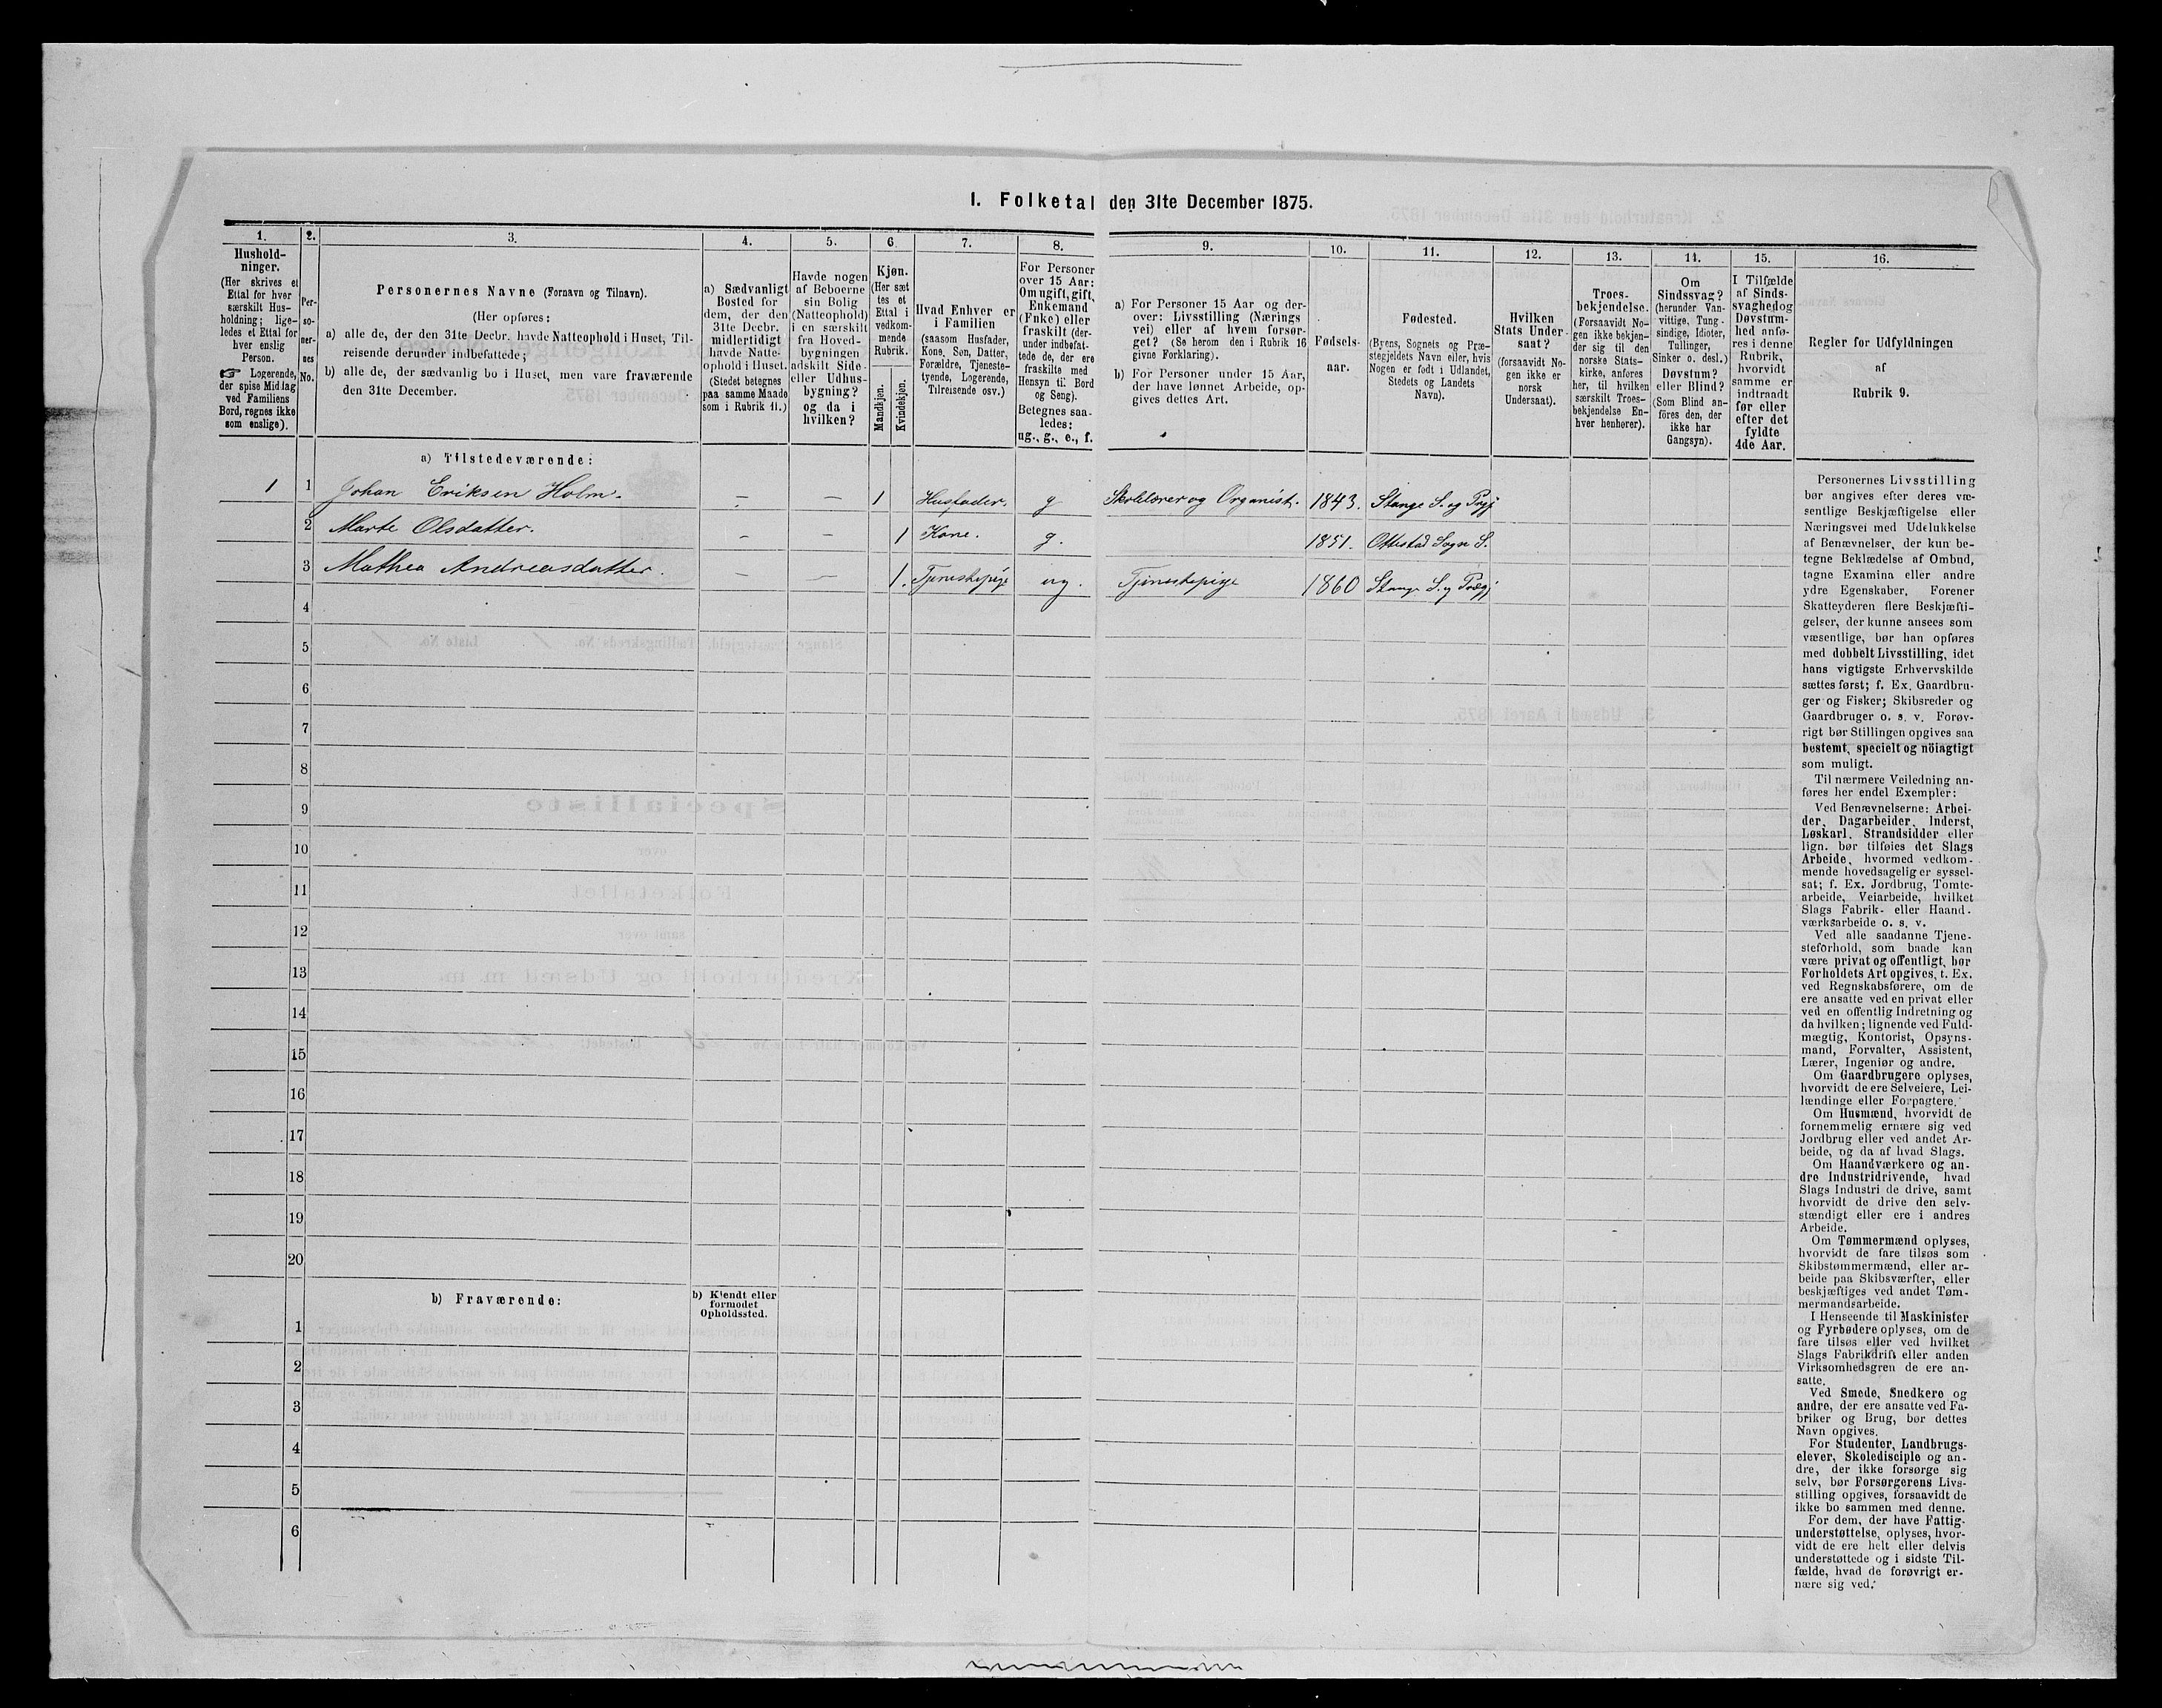 1. Folketal den 31te December 1875.
1.
2.
3.
4.
5.
6.
7.
8.
9.
10.
11.
12.
13.
14.
15.
16.
Hushold-
ninger.
(Her skrives et
Ettal for hver
særskilt Hus-
holdning; lige-
ledes et Ettal for
hver enslig
Person.
☞ Logerende,
der spise Middag
ved Familiens
Bord, regnes ikke
som enslige).
Per-
so-
ner-
nes
No.
Personernes Navne (Fornavn og Tilnavn).
(Her opføres:
a) alle de, der den 31te Decbr. havde Natteophold i Huset, Til-
reisende derunder indbefattede;
b) alle de, der sædvanlig bo i Huset, men vare fraværende
den 31te December.
a) Sædvanligt
Bosted for
dem, der den
31te Decbr.
midlertidigt
havde Natte-
ophold i Huset.
(Stedet betegnes
paa samme Maade
som i Rubrik 11.)
Havde nogen
af Beboerne
sin Bolig
(Natteophold)
i en særskilt
fra Hoved-
bygningen
adskilt Side-
eller Udhus-
bygning?
og da i
hvilken?
Kjøn.
(Her sæt
tes et
Ettal i
vedkom-
mende
Rubrik.
Mandkjøn.
Kvindekjøn.
Hvad Enhver er
i Familien
(saasom Husfader,
Kone, Søn, Datter,
Forældre, Tjeneste-
tyende, Logerende,
Tilreisende osv.)
For Personer
over 15 Aar:
Om ugift, gift,
Enkemand
(Enke) eller
fraskilt (der-
under indbefat-
tede de, der ere
fraskilte med
Hensyn til Bord
og Seng).
Betegnes saa-
ledes:
ug., g., e., f.
a) For Personer 15 Aar og der-
over: Livsstilling (Nærings
vei) eller af hvem forsør-
get? (Se herom den i Rubrik 16
givne Forklaring).
b) For Personer under 15 Aar,
der have lønnet Arbeide, op-
gives dettes Art.
Fødsels-
aar.
Fødested.
(Byens, Sognets og Præ-
stegjeldets Navn eller, hvis
Nogen er født i Udlandet,
Stedets og Landets
Navn).
Hvilken
Stats Under-
saat?
(forsaavidt No-
gen ikke er
norsk
Undersaat).
Troes-
bekjendelse.
(Forsaavidt No-
gen ikke bekjen-
der sig til den
norske Stats-
kirke, anføres
her, til hvilken
særskilt Troes-
bekjendelse En-
hver henhører).
Om
Sindssvag?
(herunder Van-
vittige, Tung-
sindige, Idioter,
Tullinger,
Sinker o. desl.)
Døvstum?
eller Blind?
(Som Blind an-
føres den, der
ikke har
Gangsyn).
I Tilfælde
af Sinds-
svaghed og
Døvstum-
hed anfø-
res i denne
Rubrik,
hvorvidt
samme er
indtraadt
før eller
efter det
fyldte
4de Aar.
Regler for Udfyldningen
af
Rubrik 9.
a) Tilstedeværende:
1 1 Johan Eriksen Holm. – – 1 Husfader. g Skolelærer og Organist. 1843. Stange S. og Prgj
2 Marte Olsdatter. – – 1 Kone. g. 1851. Ottestad Sogn S.
3 Mathea Andreasdatter. – – 1. Tjenestepige ug. Tjenestepige 1860 Stange S. og Prægj
4
5
6
7
8
9
10
11
12
13
14
15
16
17
18
19
20
b) Fraværende:
b) Kjendt eller
formodet
Opholdssted.
1
2
3
4
5
6
Personernes Livsstilling
bør angives efter deres væ-
sentlige Beskjæftigelse eller
Næringsvei med Udelukkelse
af Benævnelser, der kun be-
tegne Beklædelse af Ombud,
tagne Examina eller andre
ydre Egenskaber. Forener
Skatteyderen flere Beskjæfti-
gelser, der kunne ansees som
væsentlige, bør han opføres
med dobbelt Livsstilling, idet
hans vigtigste Erhvervskilde
sættes først; f. Ex. Gaardbru-
ger og Fisker; Skibsreder og
Gaardbruger o. s. v. Forøv-
rigt bør Stillingen opgives saa
bestemt, specielt og nöiagtigt
som muligt.
Til nærmere Veiledning an-
føres her endel Exempler:
Ved Benævnelserne: Arbei-
der, Dagarbeider, Inderst,
Løskarl, Strandsidder eller
lign. bør tilføies det Slags
Arbeide, hvormed vedkom-
mende hovedsagelig er syssel-
sat; f. Ex. Jordbrug, Tomte-
arbeide, Veiarbeide, hvilket
Slags Fabrik- eller Haand-
værksarbeide o. s. v.
Ved alle saadanne Tjene-
steforhold, som baade kan
være privat og offentligt, bør
Forholdets Art opgives, t. Ex.
ved Regnskabsførere, om de
ere ansatte ved en privat eller
ved en offentlig Indretning og
da hvilken; lignende ved Fuld-
mægtig, Kontorist, Opsyns-
mand, Forvalter, Assistent,
Lærer, Ingeniør og andre.
Om Gaardbrugere oplyses,
hvorvidt de ere Selveiere, Lei-
lændinge eller Forpagtere.
Om Husmænd, hvorvidt de
fornemmelig ernære sig ved
Jordbrug eller ved andet Ar-
beide, og da af hvad Slags.
Om Haandværkere og an-
dre Industridrivende, hvad
Slags Industri de drive, samt
hvorvidt de drive den selv-
stændigt eller ere i andres
Arbeide.
Om Tømmermænd oplyses,
hvorvidt de fare tilsøs som
Skibstømmermænd, eller ar-
beide paa Skibsværfter, eller
beskjæftiges ved andet Tøm-
mermandsarbeide.
I Henseende til Maskinister
og Fyrbødere oplyses, om de
fare tilsøs eller ved hvilket
Slags Fabrikdrift eller anden
Virksomhedsgren de ere an-
satte.
Ved Smede, Snedkere og
andre, der ere ansatte ved Fa-
briker og Brug, bør dettes
Navn opgives.
For Studenter, Landbrugs-
elever, Skoledisciple og an-
dre, der ikke forsørge sig
selv, bør Forsørgerens Livs-
stilling opgives, forsaavidt de
ikke bo sammen med denne.
For dem, der have Fattig-
understøttelse, oplyses, hvor-
vidt de ere helt eller delvis
understøttede og i sidste Til-
fælde, hvad de forøvrigt er-
nære sig ved.